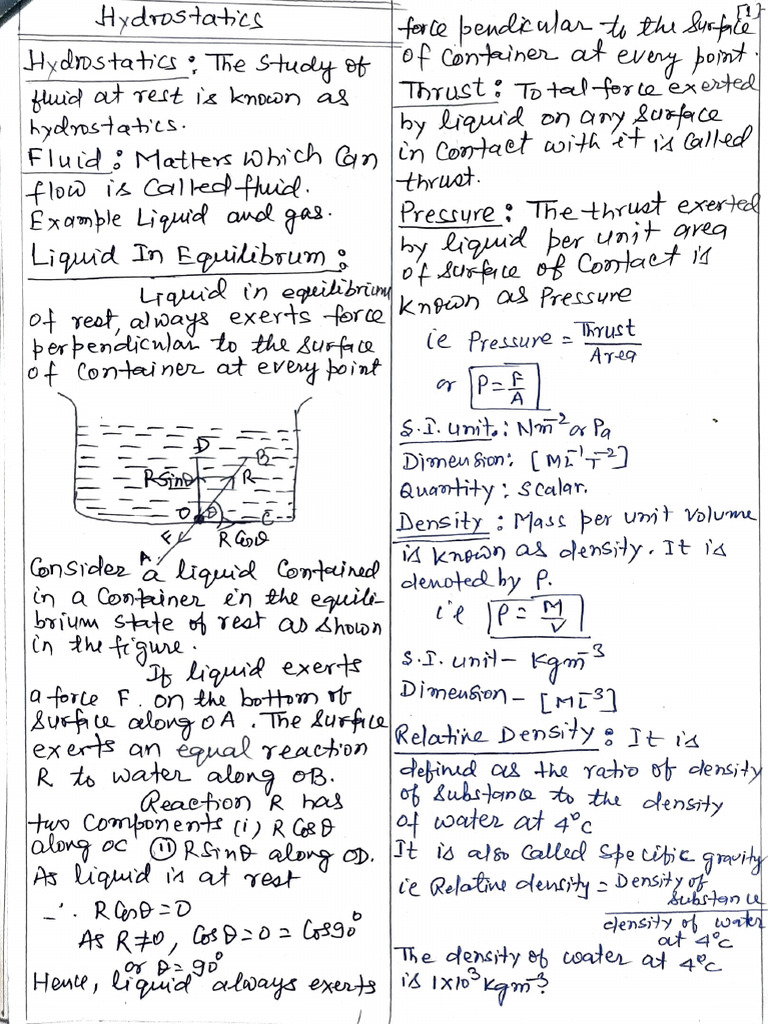 Hydrostatics
Hydrostatics: The study of
fluid at rest is known as
hydrostatics.
Fluid: Matters which can
flow is called fluid.
Example Liquid and gas.
Liquid In Equilibrum:
Liquid in equilibrium
of rest, always exerts force
perpendicular to the surface
of container at every point
D
B
RSinθ
R
O
θ
C
F
RCosθ
A
Consider a liquid contained
in a container in the equili-
brium state of rest as shown
in the figure.
If liquid exerts
a force F. on the bottom of
surface along OA. The surface
exerts an equal reaction
R to water along OB.
Reaction R has
two components (i) R Cosθ
along OC (ii) RSinθ along OD.
As liquid is at rest
∴ R Cosθ = 0
As R≠0, Cosθ = 0 = Cos90°
or θ = 90°
Hence, liquid always exerts
[1]
force pendicular to the surface
of container at every point.
Thrust: Total force exerted
by liquid on any surface
in contact with it is called
thrust.
Pressure: The thrust exerted
by liquid per unit area
of surface of contact is
known as Pressure
ie Pressure = Thrust
Area
or P = F
A
S.I. unit.: Nm⁻² or Pa
Dimension: [ML⁻¹T⁻²]
Quantity: Scalar.
Density: Mass per unit volume
is known as density. It is
denoted by ρ.
i'e ρ = M
V
S.I. unit - Kgm⁻³
Dimension - [ML⁻³]
Relative Density: It is
defined as the ratio of density
of substance to the density
of water at 4°C
It is also called specific gravity
ie Relative density = Density of
substance
density of water
at 4°C
The density of water at 4°C
is 1×10³ Kgm⁻³.